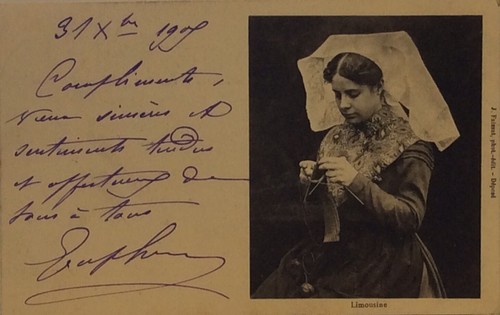 31 Xbre 190
Compliments,
vœux sincères et
sentiments tendres
et affectueux de
tous à tous
J. Faissat, phot.-édit. - Déposé
Limousine